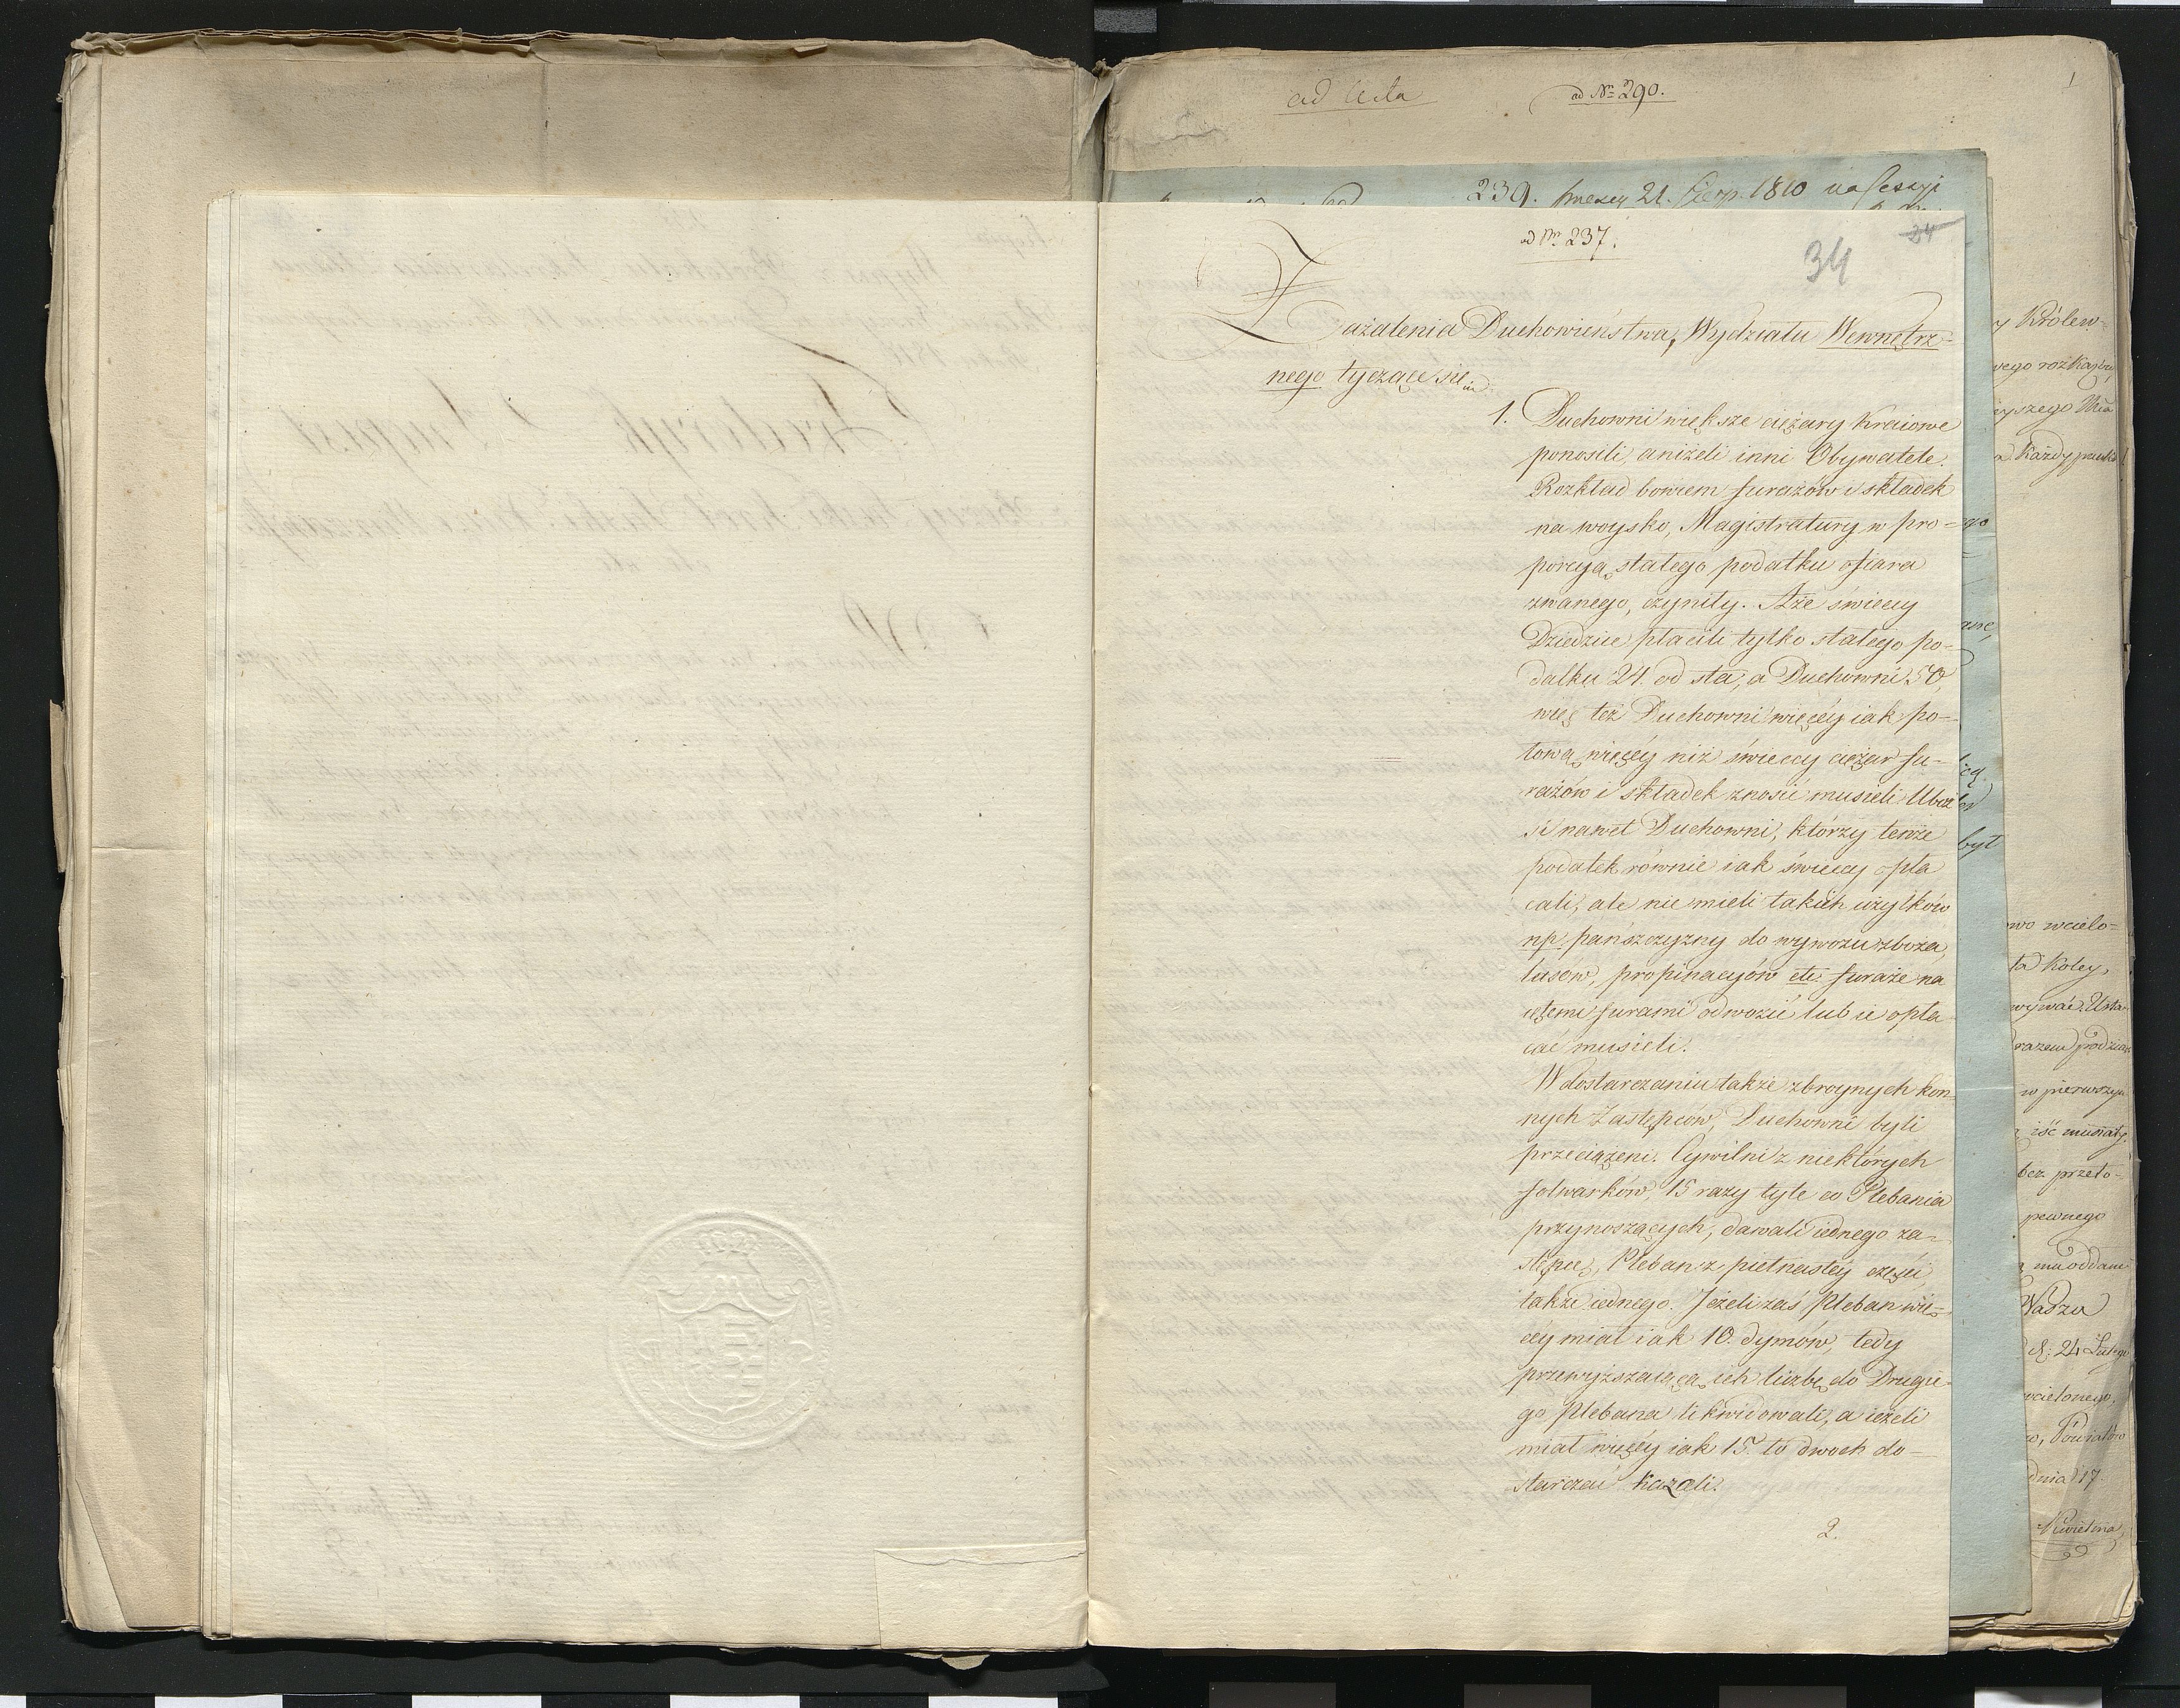 ad Acta
ad Nr 290.
1
239. 21. Sierp. 1810 na Sessyi
ad Nr. 237.
34
24
Zażalenia Duchowieństwa, Wydziału Wewnętrz-
nego tyczące się
1. Duchowni większe ciężary kraiowe
ponosili, aniżeli inni Obywatele.
Rozkład bowiem furażów i składek
na woysko, Magistratury w pro-
porcyą stałego podatku ofiara
zwanego, czyniły. Aże świeccy
Dziedzice płacili tylko stałego po-
datku 24. od sta, a Duchowni 50,
więc też Duchowni więcéy iak po-
łową więcéy niż świeccy ciężar fu-
rażów i składek znosić musieli. Uboż
si nawet Duchowni, którzy tenże
podatek równie iak świeccy opła
cali, ale nie mieli takich użytków
np. pańszczyzny do wywozu zboża,
lasów, propinacyów etc. furaże na
iętemi furami odwozić lub ie opła
cać musieli.
W dostarczaniu także zbroynych kon
nych Zastępców, Duchowni byli
przeciążeni. Cywilni z niektórych
folwarków, 15 razy tyle co Plebania
przynoszących, dawali iednego za-
stępcę, Pleban z piętnastéy części,
także iednego. Jeżeli zaś Pleban wię-
céy miał iak 10. dymów, tedy
przewyższaiącą ich liczbę do Drugie-
go Plebana likwidowali, a ieżeli
miał więcéy iak 15. to dwoch do-
starczać kazali.
2.
y Królew-
wego rozkazu,
yszego
a każdy
ego
był
owo wcielo-
ta koley,
w pierwszym
iść musiały.
bez przeło-
pewnego
mu oddane
d: 24 Lutego
wcielonego,
w, Powiatów
dnia 17.
Kwietnia,